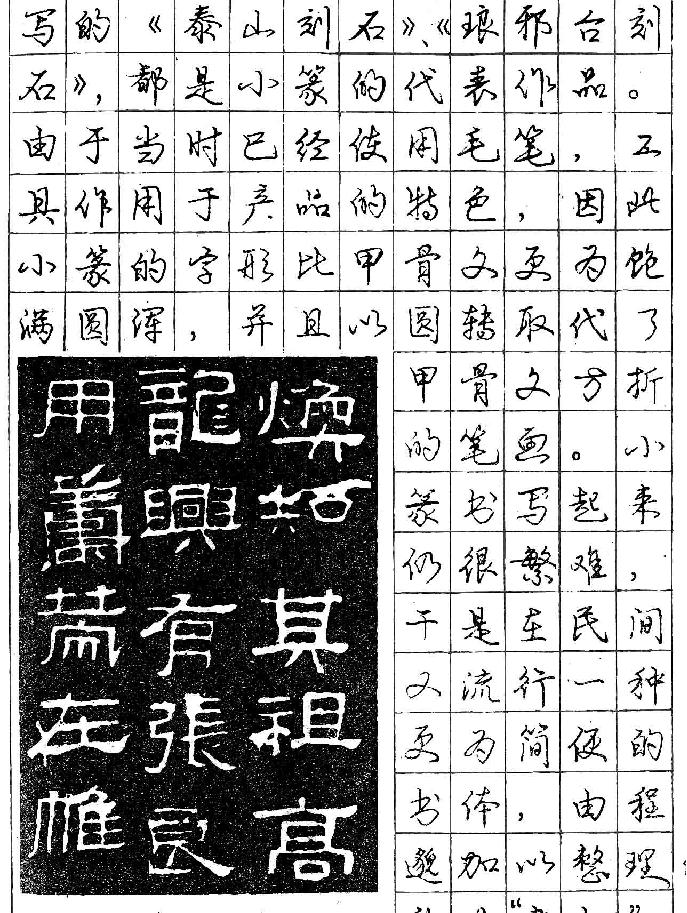 写的《泰山刻石》、《琅邪台刻
石》，都是小篆的代表作品。
由于当时已经使用毛笔，工
具作用于产品的特色，因此
小篆的字形比甲骨文更为饱
满圆浑，并且以圆转取代了
甲骨文方折
的笔画。小
篆书写起来
仍很繁难，
于是在民间
又流行一种
更为简便的
书体，由程
邈加以整理
煥知其祖高
龍興有張良
用籌策在帷